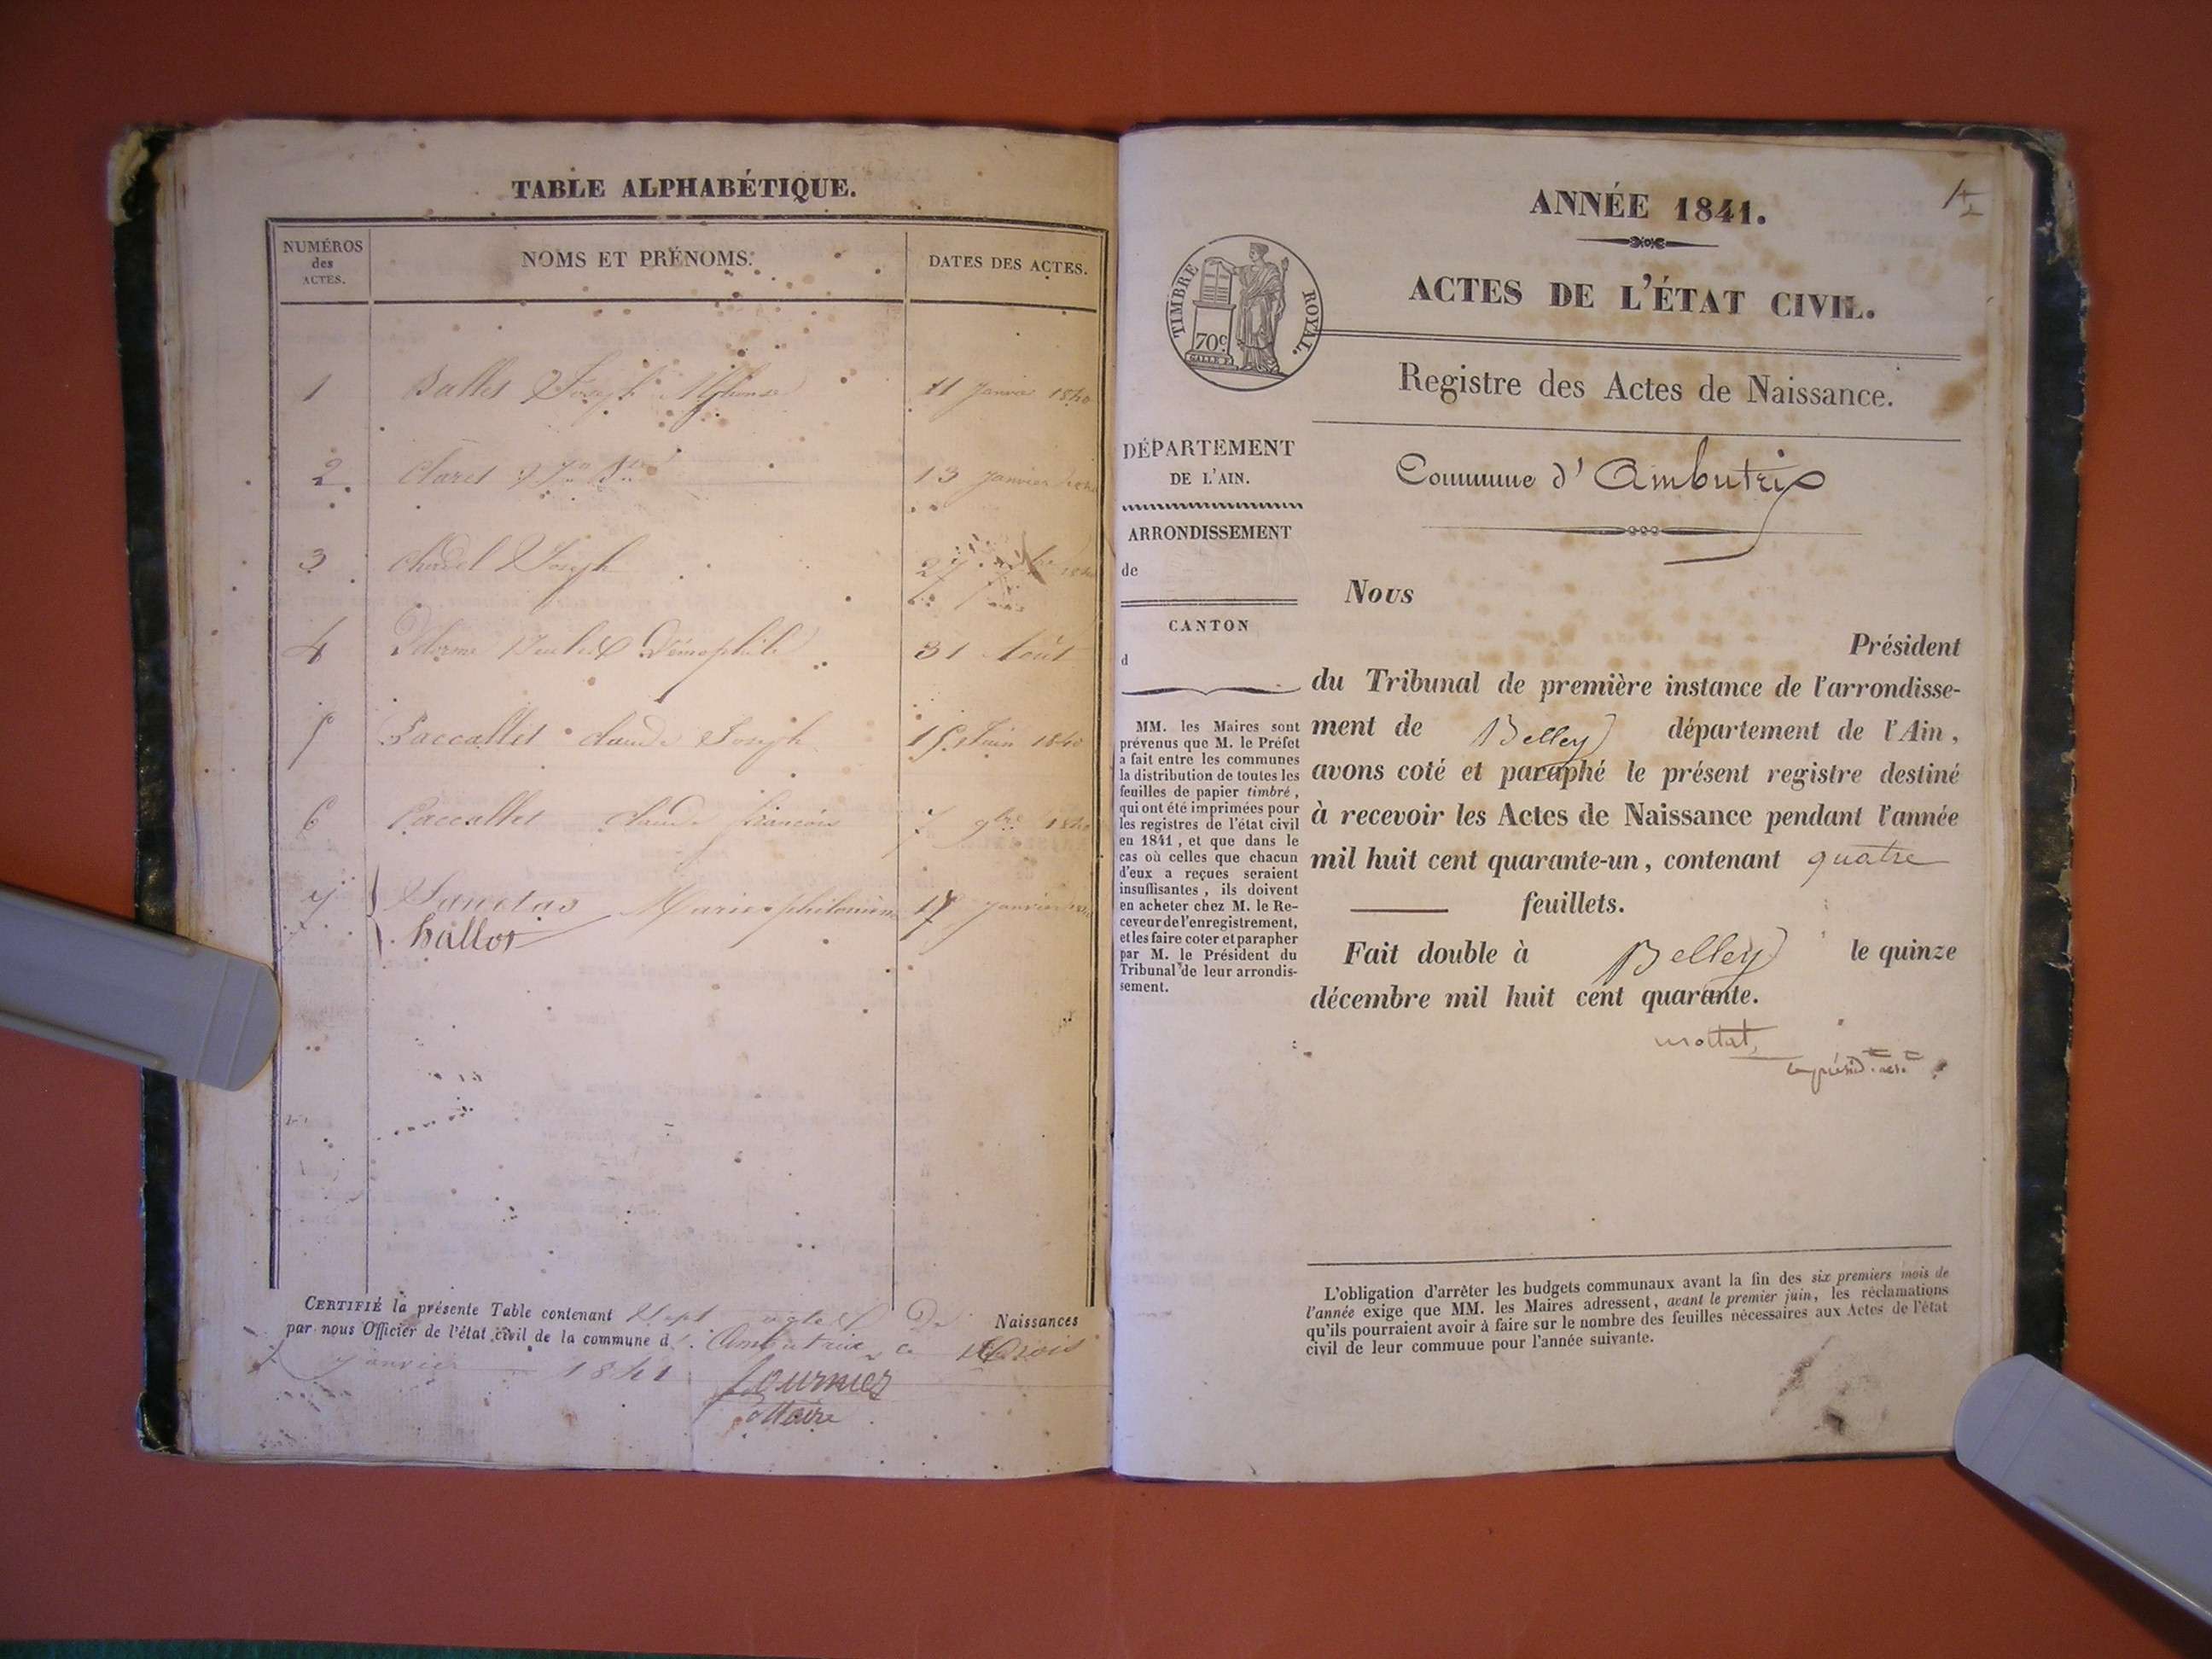 TABLE ALPHABÉTIQUE.
NUMÉROS
des
ACTES.
NOMS ET PRÉNOMS.
DATES DES ACTES.
1 Ballet Joseph Alphonse 11 Janvier 1840
2 Claret 13 Janvier
3 Chadel Joseph 27
4 31 Août
5 Paccallet claude Joseph 15 Juin 1840
6 Paccallet claude francois 9bre 1840
7 Sanetas Marie philomène 17 Janvier
Ballot
CERTIFIÉ la présente Table contenant Sept actes De Naissances
par nous Officier de l'état civil de la commune d'Ambutrix ce trois
Janvier 1841
fournier
Maire
1
ANNÉE 1841.
ACTES DE L'ÉTAT CIVIL.
TIMBRE ROYAL.
70c
Registre des Actes de Naissance.
DÉPARTEMENT
DE L'AIN.
ARRONDISSEMENT
de
CANTON
d
MM. les Maires sont
prévenus que M. le Préfet
a fait entre les communes
la distribution de toutes les
feuilles de papier timbré,
qui ont été imprimées pour
les registres de l'état civil
en 1841, et que dans le
cas où celles que chacun
d'eux a reçues seraient
insuffisantes, ils doivent
en acheter chez M. le Re-
ceveur de l'enregistrement,
et les faire coter et parapher
par M. le Président du
Tribunal de leur arrondis-
sement.
Commune d'Ambutrix
Nous
Président
du Tribunal de première instance de l'arrondisse-
ment de Belley département de l'Ain,
avons coté et paraphé le présent registre destiné
à recevoir les Actes de Naissance pendant l'année
mil huit cent quarante-un, contenant quatre
feuillets.
Fait double à Belley le quinze
décembre mil huit cent quarante.
L'obligation d'arrêter les budgets communaux avant la fin des six premiers mois de
l'année exige que MM. les Maires adressent, avant le premier juin, les réclamations
qu'ils pourraient avoir à faire sur le nombre des feuilles nécessaires aux Actes de l'état
civil de leur commune pour l'année suivante.